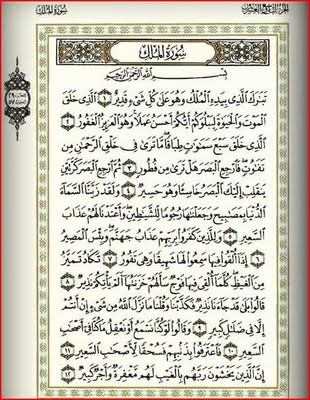 الجزء التاسع والعشرون
سورة الملك
سُورَةُ الْمُلْكِ
بِسْمِ اللَّهِ الرَّحْمَٰنِ الرَّحِيمِ
تَبَٰرَكَ الَّذِي بِيَدِهِ الْمُلْكُ وَهُوَ عَلَىٰ كُلِّ شَيْءٍ قَدِيرٌ ١ الَّذِي خَلَقَ
الْمَوْتَ وَالْحَيَوٰةَ لِيَبْلُوَكُمْ أَيُّكُمْ أَحْسَنُ عَمَلًا وَهُوَ الْعَزِيزُ الْغَفُورُ ٢
الَّذِي خَلَقَ سَبْعَ سَمَٰوَٰتٍ طِبَاقًا مَّا تَرَىٰ فِي خَلْقِ الرَّحْمَٰنِ مِن
تَفَٰوُتٍ فَارْجِعِ الْبَصَرَ هَلْ تَرَىٰ مِن فُطُورٍ ٣ ثُمَّ ارْجِعِ الْبَصَرَ كَرَّتَيْنِ
يَنقَلِبْ إِلَيْكَ الْبَصَرُ خَاسِئًا وَهُوَ حَسِيرٌ ٤ وَلَقَدْ زَيَّنَّا السَّمَاءَ
الدُّنْيَا بِمَصَٰبِيحَ وَجَعَلْنَٰهَا رُجُومًا لِّلشَّيَٰطِينِ وَأَعْتَدْنَا لَهُمْ عَذَابَ
السَّعِيرِ ٥ وَلِلَّذِينَ كَفَرُوا بِرَبِّهِمْ عَذَابُ جَهَنَّمَ وَبِئْسَ الْمَصِيرُ
٦ إِذَا أُلْقُوا فِيهَا سَمِعُوا لَهَا شَهِيقًا وَهِيَ تَفُورُ ٧ تَكَادُ تَمَيَّزُ
مِنَ الْغَيْظِ كُلَّمَا أُلْقِيَ فِيهَا فَوْجٌ سَأَلَهُمْ خَزَنَتُهَا أَلَمْ يَأْتِكُمْ نَذِيرٌ ٨
قَالُوا بَلَىٰ قَدْ جَاءَنَا نَذِيرٌ فَكَذَّبْنَا وَقُلْنَا مَا نَزَّلَ اللَّهُ مِن شَيْءٍ إِنْ أَنتُمْ
إِلَّا فِي ضَلَٰلٍ كَبِيرٍ ٩ وَقَالُوا لَوْ كُنَّا نَسْمَعُ أَوْ نَعْقِلُ مَا كُنَّا فِي أَصْحَٰبِ
السَّعِيرِ ١٠ فَاعْتَرَفُوا بِذَنبِهِمْ فَسُحْقًا لِّأَصْحَٰبِ السَّعِيرِ ١١
إِنَّ الَّذِينَ يَخْشَوْنَ رَبَّهُم بِالْغَيْبِ لَهُم مَّغْفِرَةٌ وَأَجْرٌ كَبِيرٌ ١٢